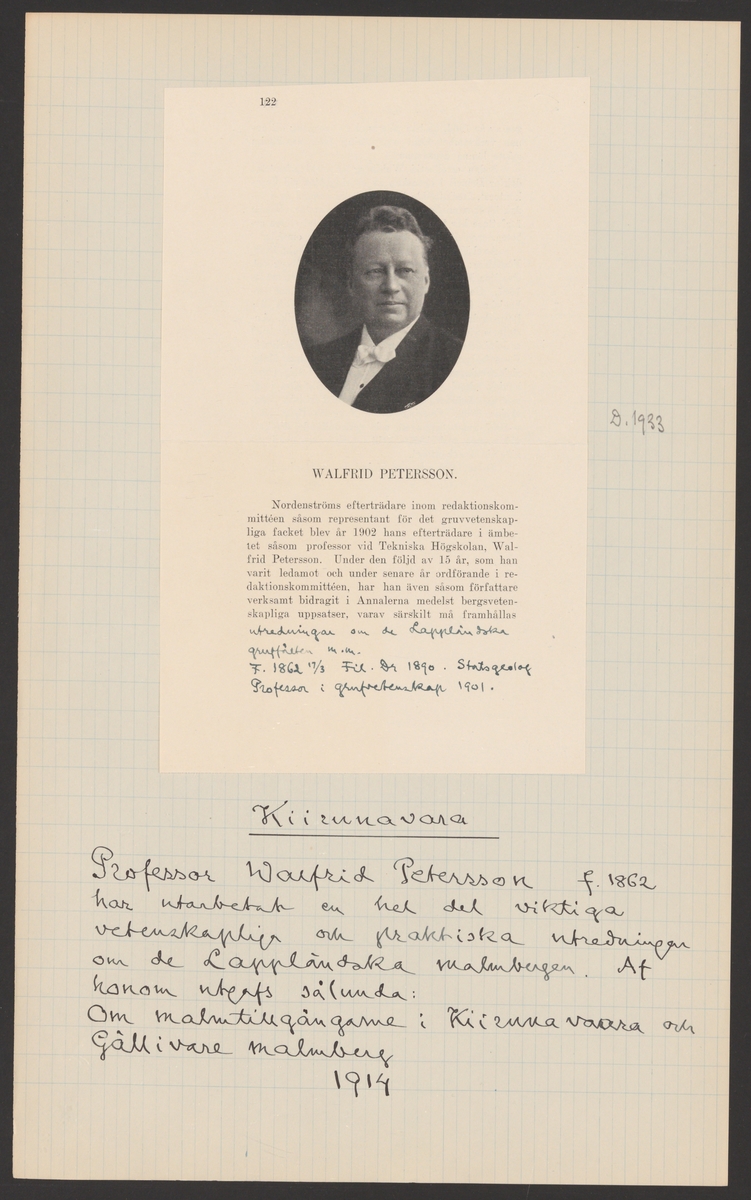 122
D. 1933
WALFRID PETERSSON.
Nordenströms efterträdare inom redaktionskom-
mittéen såsom representant för det gruvvetenskap-
liga facket blev år 1902 hans efterträdare i ämbe-
tet såsom professor vid Tekniska Högskolan, Wal-
frid Petersson. Under den följd av 15 år, som han
varit ledamot och under senare år ordförande i re-
daktionskommittéen, har han även såsom författare
verksamt bidragit i Annalerna medelst bergsveten-
skapliga uppsatser, varav särskilt må framhållas
utredningar om de Lappländska
gruffälten m.m.
F. 1862 17/3 Fil. Dr 1890. Statsgeolog
Professor i grufvetenskap 1901.
Kiirunavara
Professor Walfrid Petersson f. 1862
har utarbetat en hel del viktiga
vetenskapliga och praktiska utredningar
om de Lappländska malmbergen. Af
honom utgafs sålunda:
Om malmtillgångarne i Kiirunavaara och
Gällivare malmberg
1914